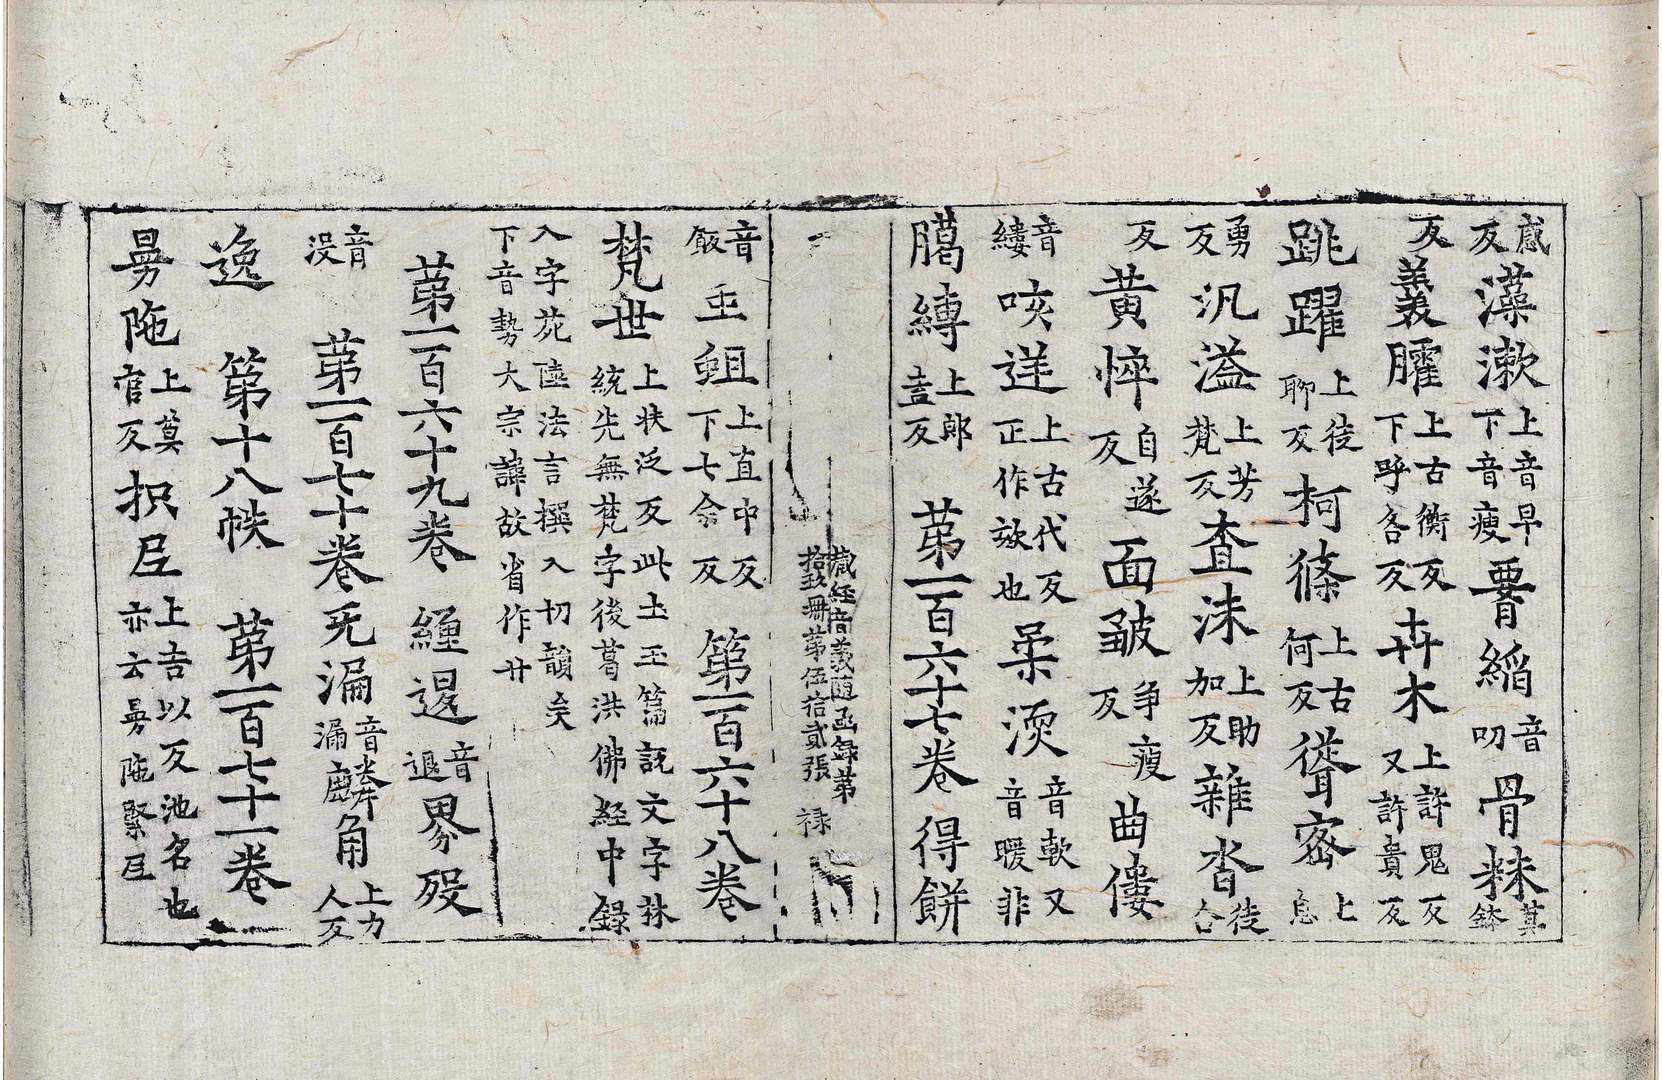 感反藻漱上音早下音瘦㝹縚音叨骨䊳莫鉢
反羲臛上古衡反下呼各反卉木上許鬼反又許貴反
跳躍上徒聊反柯條上古何反聳密上息
勇反汎溢上芳梵反查沫上助加反雜沓徒合
反黃悴自遂反面皺爭瘦反曲僂
音縷咳逆上古代反正作欬也柔渜音軟又音暖非
臈縛上郎盍反 第一百六十七卷 得餅
藏經音義隨函錄第拾玖冊第伍拾貳張 祿
音飯䖝蛆上直中反下七余反 第一百六十八卷
梵世上扶泛反此土玉篇說文字林統先無梵字後葛洪佛經中錄
入字苑陸法言撰入切韻矣下音勢大宗諱故省作卅
第一百六十九卷 纏邊音邊界歿
音沒 第一百七十卷 旡漏音漏麟角上力人反
逸 第十八帙 第一百七十一卷
㬅陁上莫官反抧𡰱上吉以反池名也亦云㬅陁緊𡰱